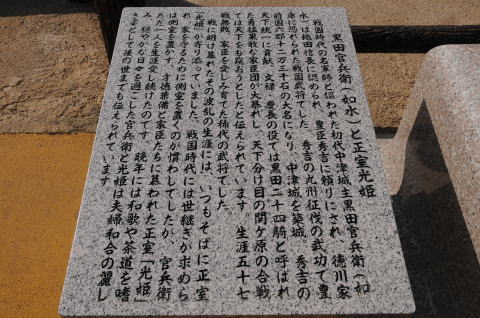 黒田官兵衛（如水）と正室光姫
戦国時代の名軍師と謳われた初代中津城主黒田官兵衛（如
水）は織田信長に認められ、豊臣秀吉に頼りにされ、徳川家
康に恐れられた戦国武将でした。秀吉の九州征伐の武功で豊
前国六郡十二万三千石の大名になり、中津城を築城、秀吉の
天下統一に貢献、文禄・慶長の役では黒田二十四騎と呼ばれ
た勇猛果敢な家臣団が大暴れし、天下分け目の関ケ原の合戦
では天下をも窺おうとしたと伝えられています。生涯五十七
戦無敗、家臣を愛しみ育てた稀代の武将でした。
戦に明け暮れたその波乱の生涯には、いつもそばに正室
「光姫」が寄り添っていました。戦国時代には世継ぎが求めら
れ、家を守るために側室を置くのが慣わしでしたが、官兵衛
は側室を置かず、才徳兼備と家臣たちに慕われた正室「光姫」
たった一人を生涯愛し続けたのです。晩年には和歌や茶道を嗜
み、穏やかな日々を過ごした官兵衛と光姫は夫婦和合の麗し
き姿として後の世までも伝えられています。